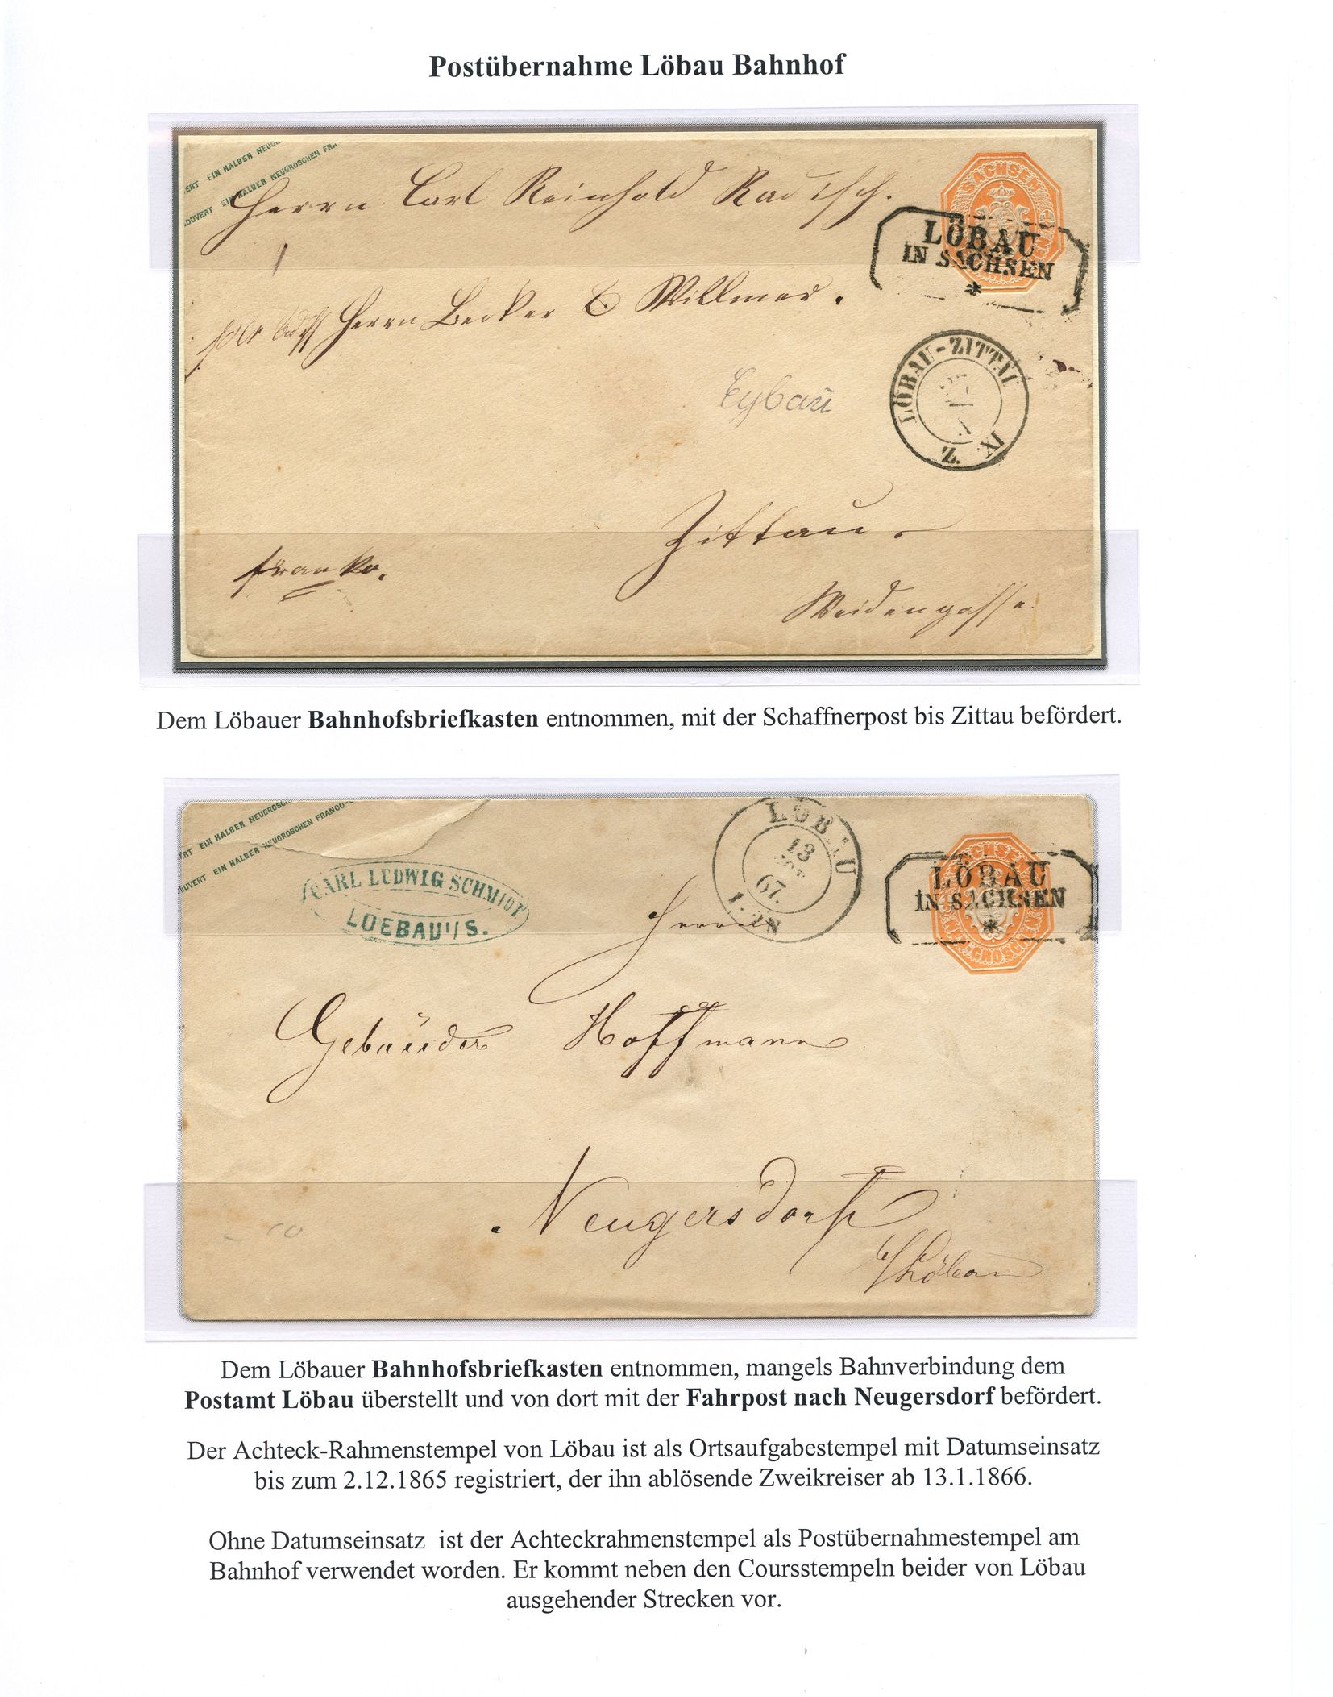 Postübernahme Löbau Bahnhof
VERT EIN HALBER NEUG
COUVERT EIN HALBER NEUGROSCHEN FRA
Herrn Carl Reinhold
SACHSEN
LÖBAU
IN SACHSEN
*
Herrn Becker & Willmer.
LÖBAU-ZITTAU
IX Z.
Eybau
Zittau.
franko.
Weidengasse
Dem Löbauer Bahnhofsbriefkasten entnommen, mit der Schaffnerpost bis Zittau befördert.
VERT EIN HALBER NEUGROSC
OUVERT EIN HALBER NEUGROSCHEN FRANCO
CARL LUDWIG SCHMIDT
LOEBAU I/S.
LÖBAU
13
67.
SACHSEN
LÖBAU
IN SACHSEN
*
Herrn
Gebrüder Hoffmann
Neugersdorf
b/Löbau
Dem Löbauer Bahnhofsbriefkasten entnommen, mangels Bahnverbindung dem
Postamt Löbau überstellt und von dort mit der Fahrpost nach Neugersdorf befördert.
Der Achteck-Rahmenstempel von Löbau ist als Ortsaufgabestempel mit Datumseinsatz
bis zum 2.12.1865 registriert, der ihn ablösende Zweikreiser ab 13.1.1866.
Ohne Datumseinsatz ist der Achteckrahmenstempel als Postübernahmestempel am
Bahnhof verwendet worden. Er kommt neben den Coursstempeln beider von Löbau
ausgehender Strecken vor.